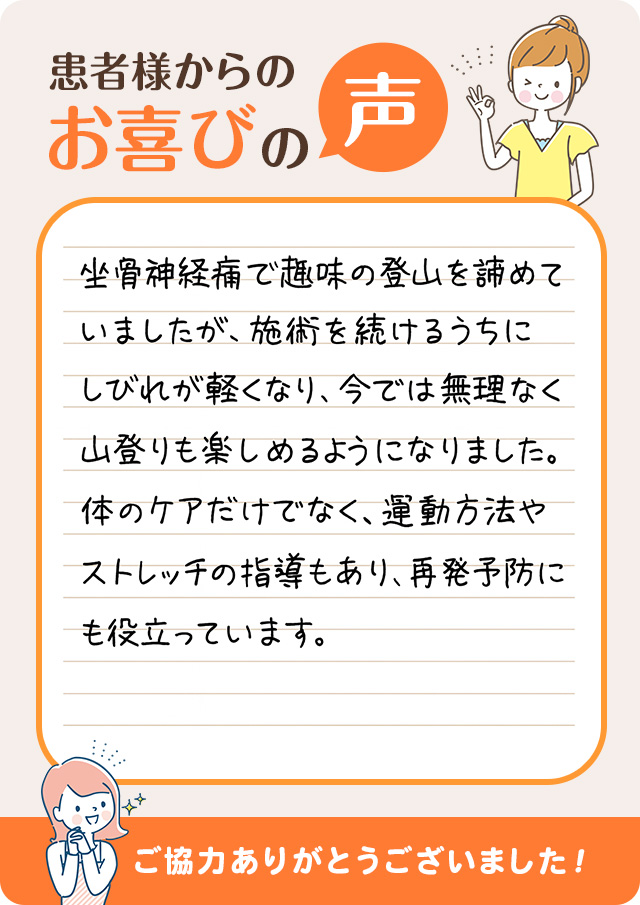 患者様からの
お喜びの声
坐骨神経痛で趣味の登山を諦めて
いましたが、施術を続けるうちに
しびれが軽くなり、今では無理なく
山登りも楽しめるようになりました。
体のケアだけでなく、運動方法や
ストレッチの指導もあり、再発予防に
も役立っています。
ご協力ありがとうございました!